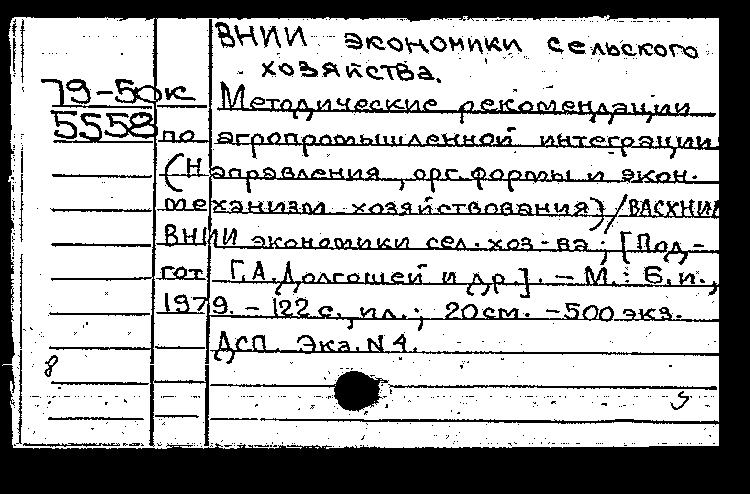 ВНИИ экономики сельского
хозяйства.
79-50к
5558
Методические рекомендации
по агропромышленной интеграции
(направления, орг. формы и экон.
механизм хозяйствования) / ВАСХНИЛ
ВНИИ экономики сел. хоз-ва; [Под-
гот. Г.А. Долгошей и др.]. – М.: Б.и.,
1979. – 122 с., ил.; 20 см. – 500 экз.
Дсп. Экз. N 4.
8